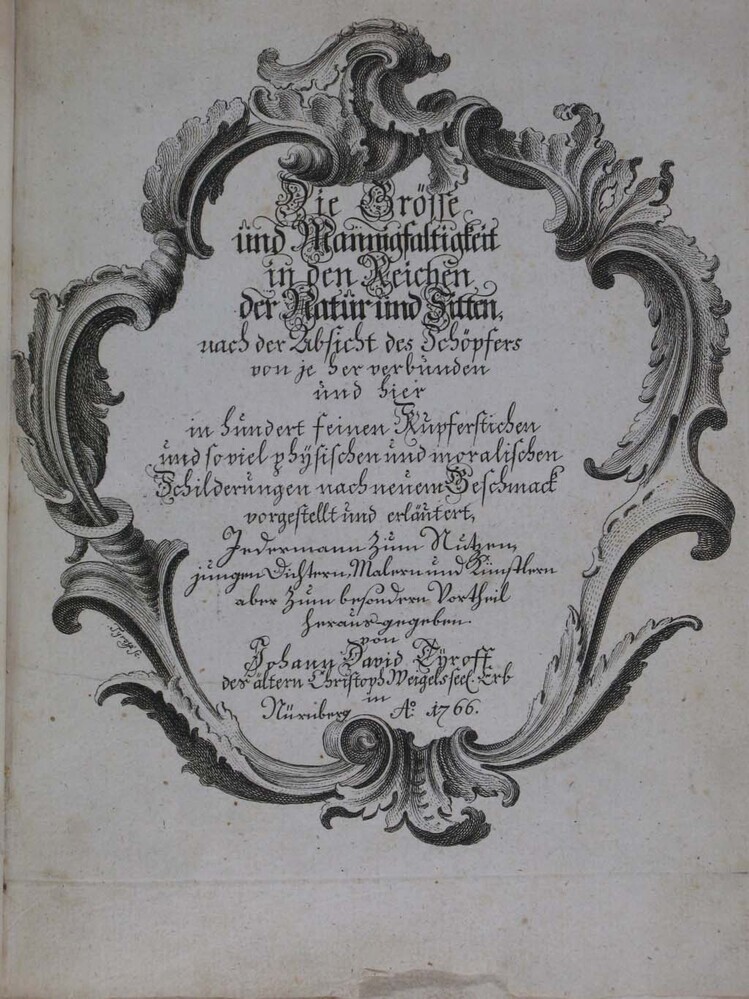 Die Grösse
und Mannigfaltigkeit
in den Reichen
der Natur und Sitten,
nach der Absicht des Schöpfers
von je her verbunden
und hier
in hundert feinen Kupferstichen
und so viel physischen und moralischen
Schilderungen nach neuem Geschmack
vorgestellt und erläutert,
Jedermann zum Nutzen,
jungen Dichtern, Malern und Künstlern
aber zum besondern Vortheil
herausgegeben.
von
Johann David Tyroff
des ältern Christoph Weigels seel. Erb
in
Nürnberg Aº. 1766.
Tyroff sc.